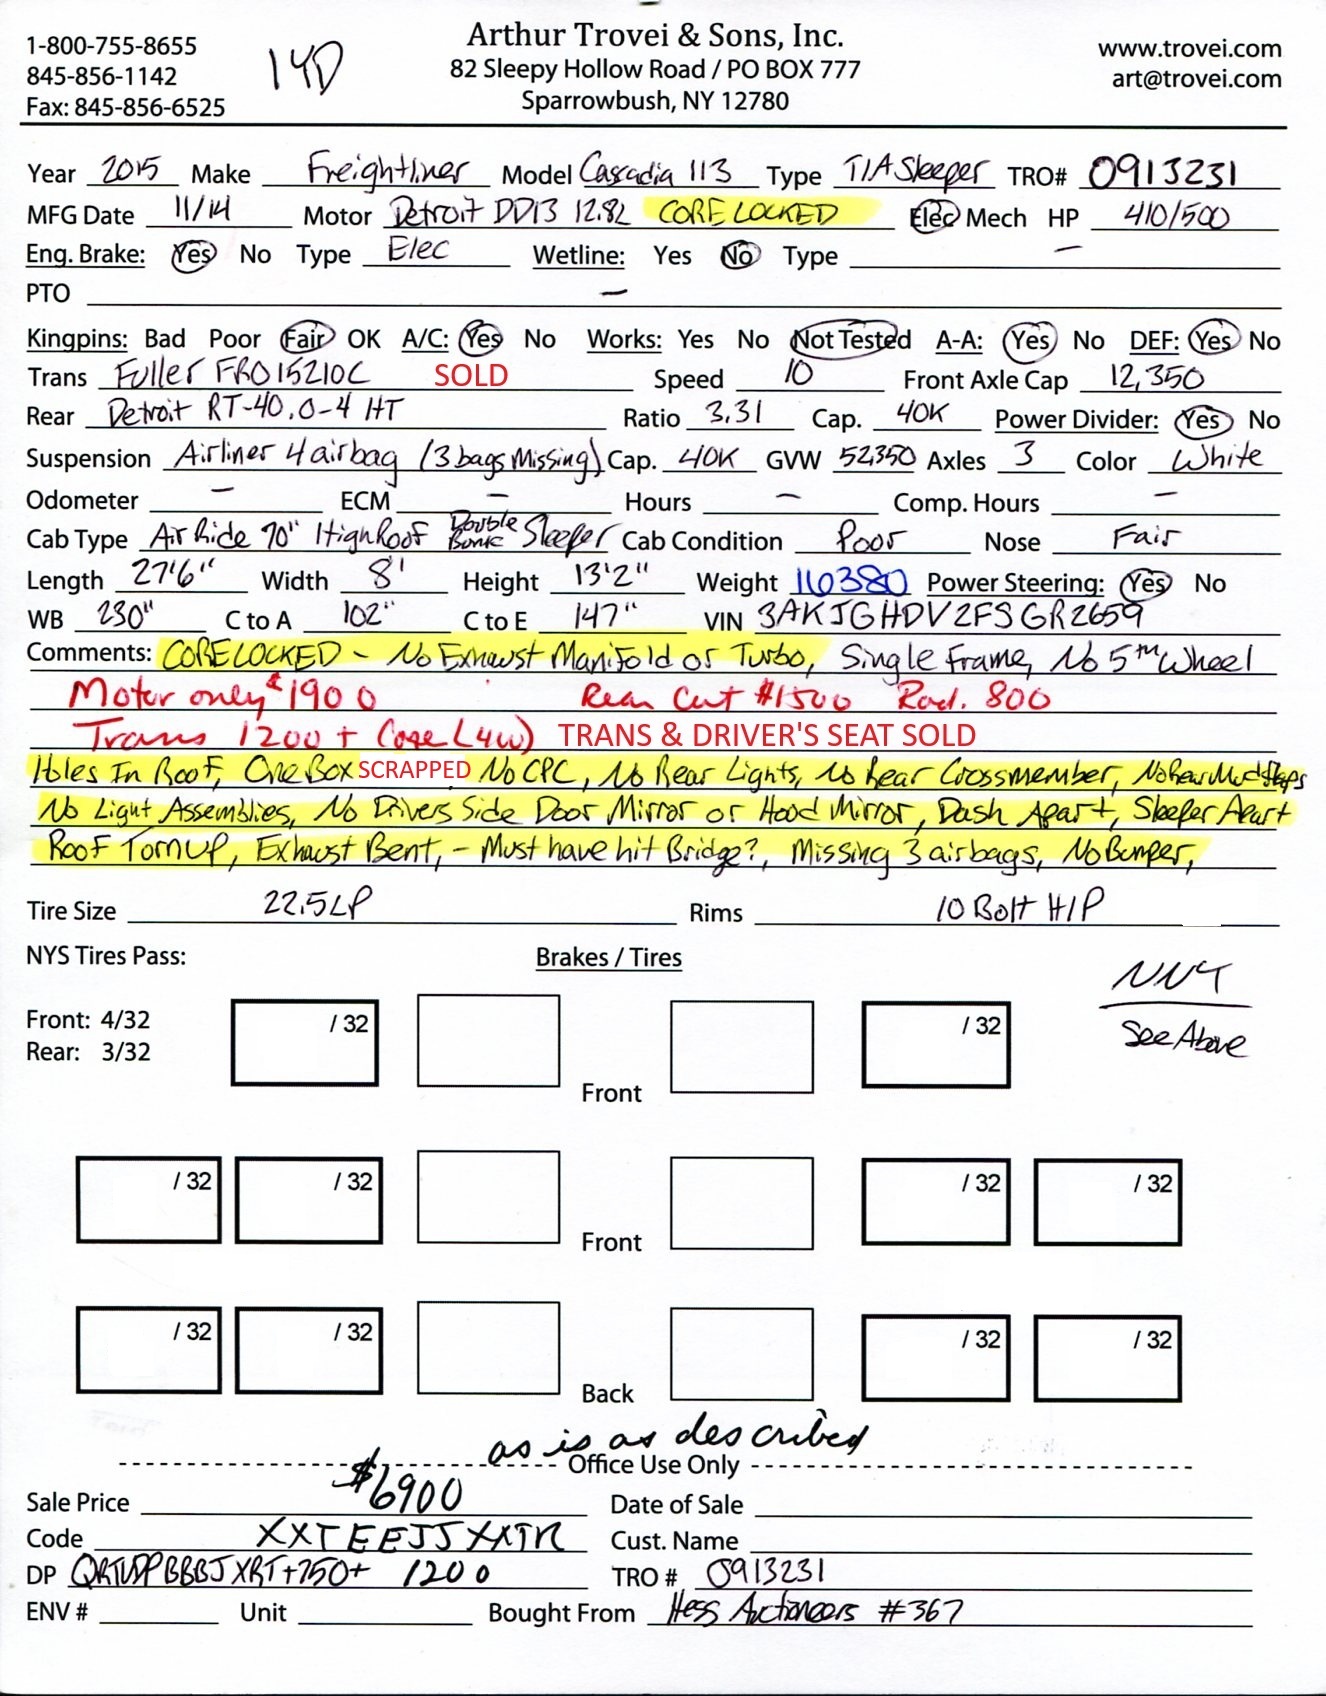 1-800-755-8655
845-856-1142
Fax: 845-856-6525
14D
Arthur Trovei & Sons, Inc.
82 Sleepy Hollow Road / PO BOX 777
Sparrowbush, NY 12780
www.trovei.com
art@trovei.com
Year 2015 Make Freightliner Model Cascadia 113 Type T/A Sleeper TRO# 0913231
MFG Date 11/14 Motor Detroit DD13 12.8L CORE LOCKED Elec Mech HP 410/500
Eng. Brake: Yes No Type Elec Wetline: Yes No Type —
PTO —
Kingpins: Bad Poor Fair OK A/C: Yes No Works: Yes No Not Tested A-A: Yes No DEF: Yes No
Trans Fuller FRO15210C SOLD Speed 10 Front Axle Cap 12,350
Rear Detroit RT-40.0-4 HT Ratio 3.31 Cap. 40K Power Divider: Yes No
Suspension Airliner 4 airbag (3 bags Missing) Cap. 40K GVW 52,350 Axles 3 Color White
Odometer — ECM — Hours — Comp. Hours —
Cab Type Air Ride 70" High Roof Double Bunk Sleeper Cab Condition Poor Nose Fair
Length 27'6" Width 8' Height 13'2" Weight 16380 Power Steering: Yes No
WB 230" C to A 102" C to E 147" VIN 3AKJGHDV2FSGR2659
Comments: CORE LOCKED - No Exhaust Manifold or Turbo, Single Frame, No 5th Wheel
Motor only $1900 Rear Cut $1500 Rad. 800
Trans 1200 + Core (4W) TRANS & DRIVER'S SEAT SOLD
Holes In Roof, One Box SCRAPPED No CPC, No Rear Lights, No Rear Crossmember, No Rear Mudflaps
No Light Assemblies, No Drivers Side Door Mirror or Hood Mirror, Dash Apart, Sleeper Apart
Roof Torn Up, Exhaust Bent, - Must have hit Bridge?, Missing 3 airbags, No Bumper,
Tire Size 22.5LP Rims 10 Bolt H/P
NYS Tires Pass:
Brakes / Tires
NNT
See Above
Front: 4/32
Rear: 3/32
/ 32 / 32
Front
/ 32 / 32 / 32 / 32
Front
/ 32 / 32 / 32 / 32
Back
as is as described
Office Use Only
Sale Price $6900 Date of Sale
Code XXTEEJJXXTR Cust. Name
DP +750+ 1200 TRO # 0913231
ENV # Unit Bought From Hess Auctioneers #367